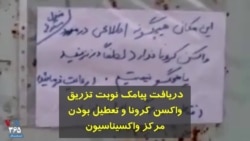 این مکان هیچگونه اطلاعی در مورد
واکسن کرونا ندارد لطفاً در نزنید
پاسخگو نیستیم
دریافت پیامک نوبت تزریق
واکسن کرونا و تعطیل بودن
مرکز واکسیناسیون
۳۶۵